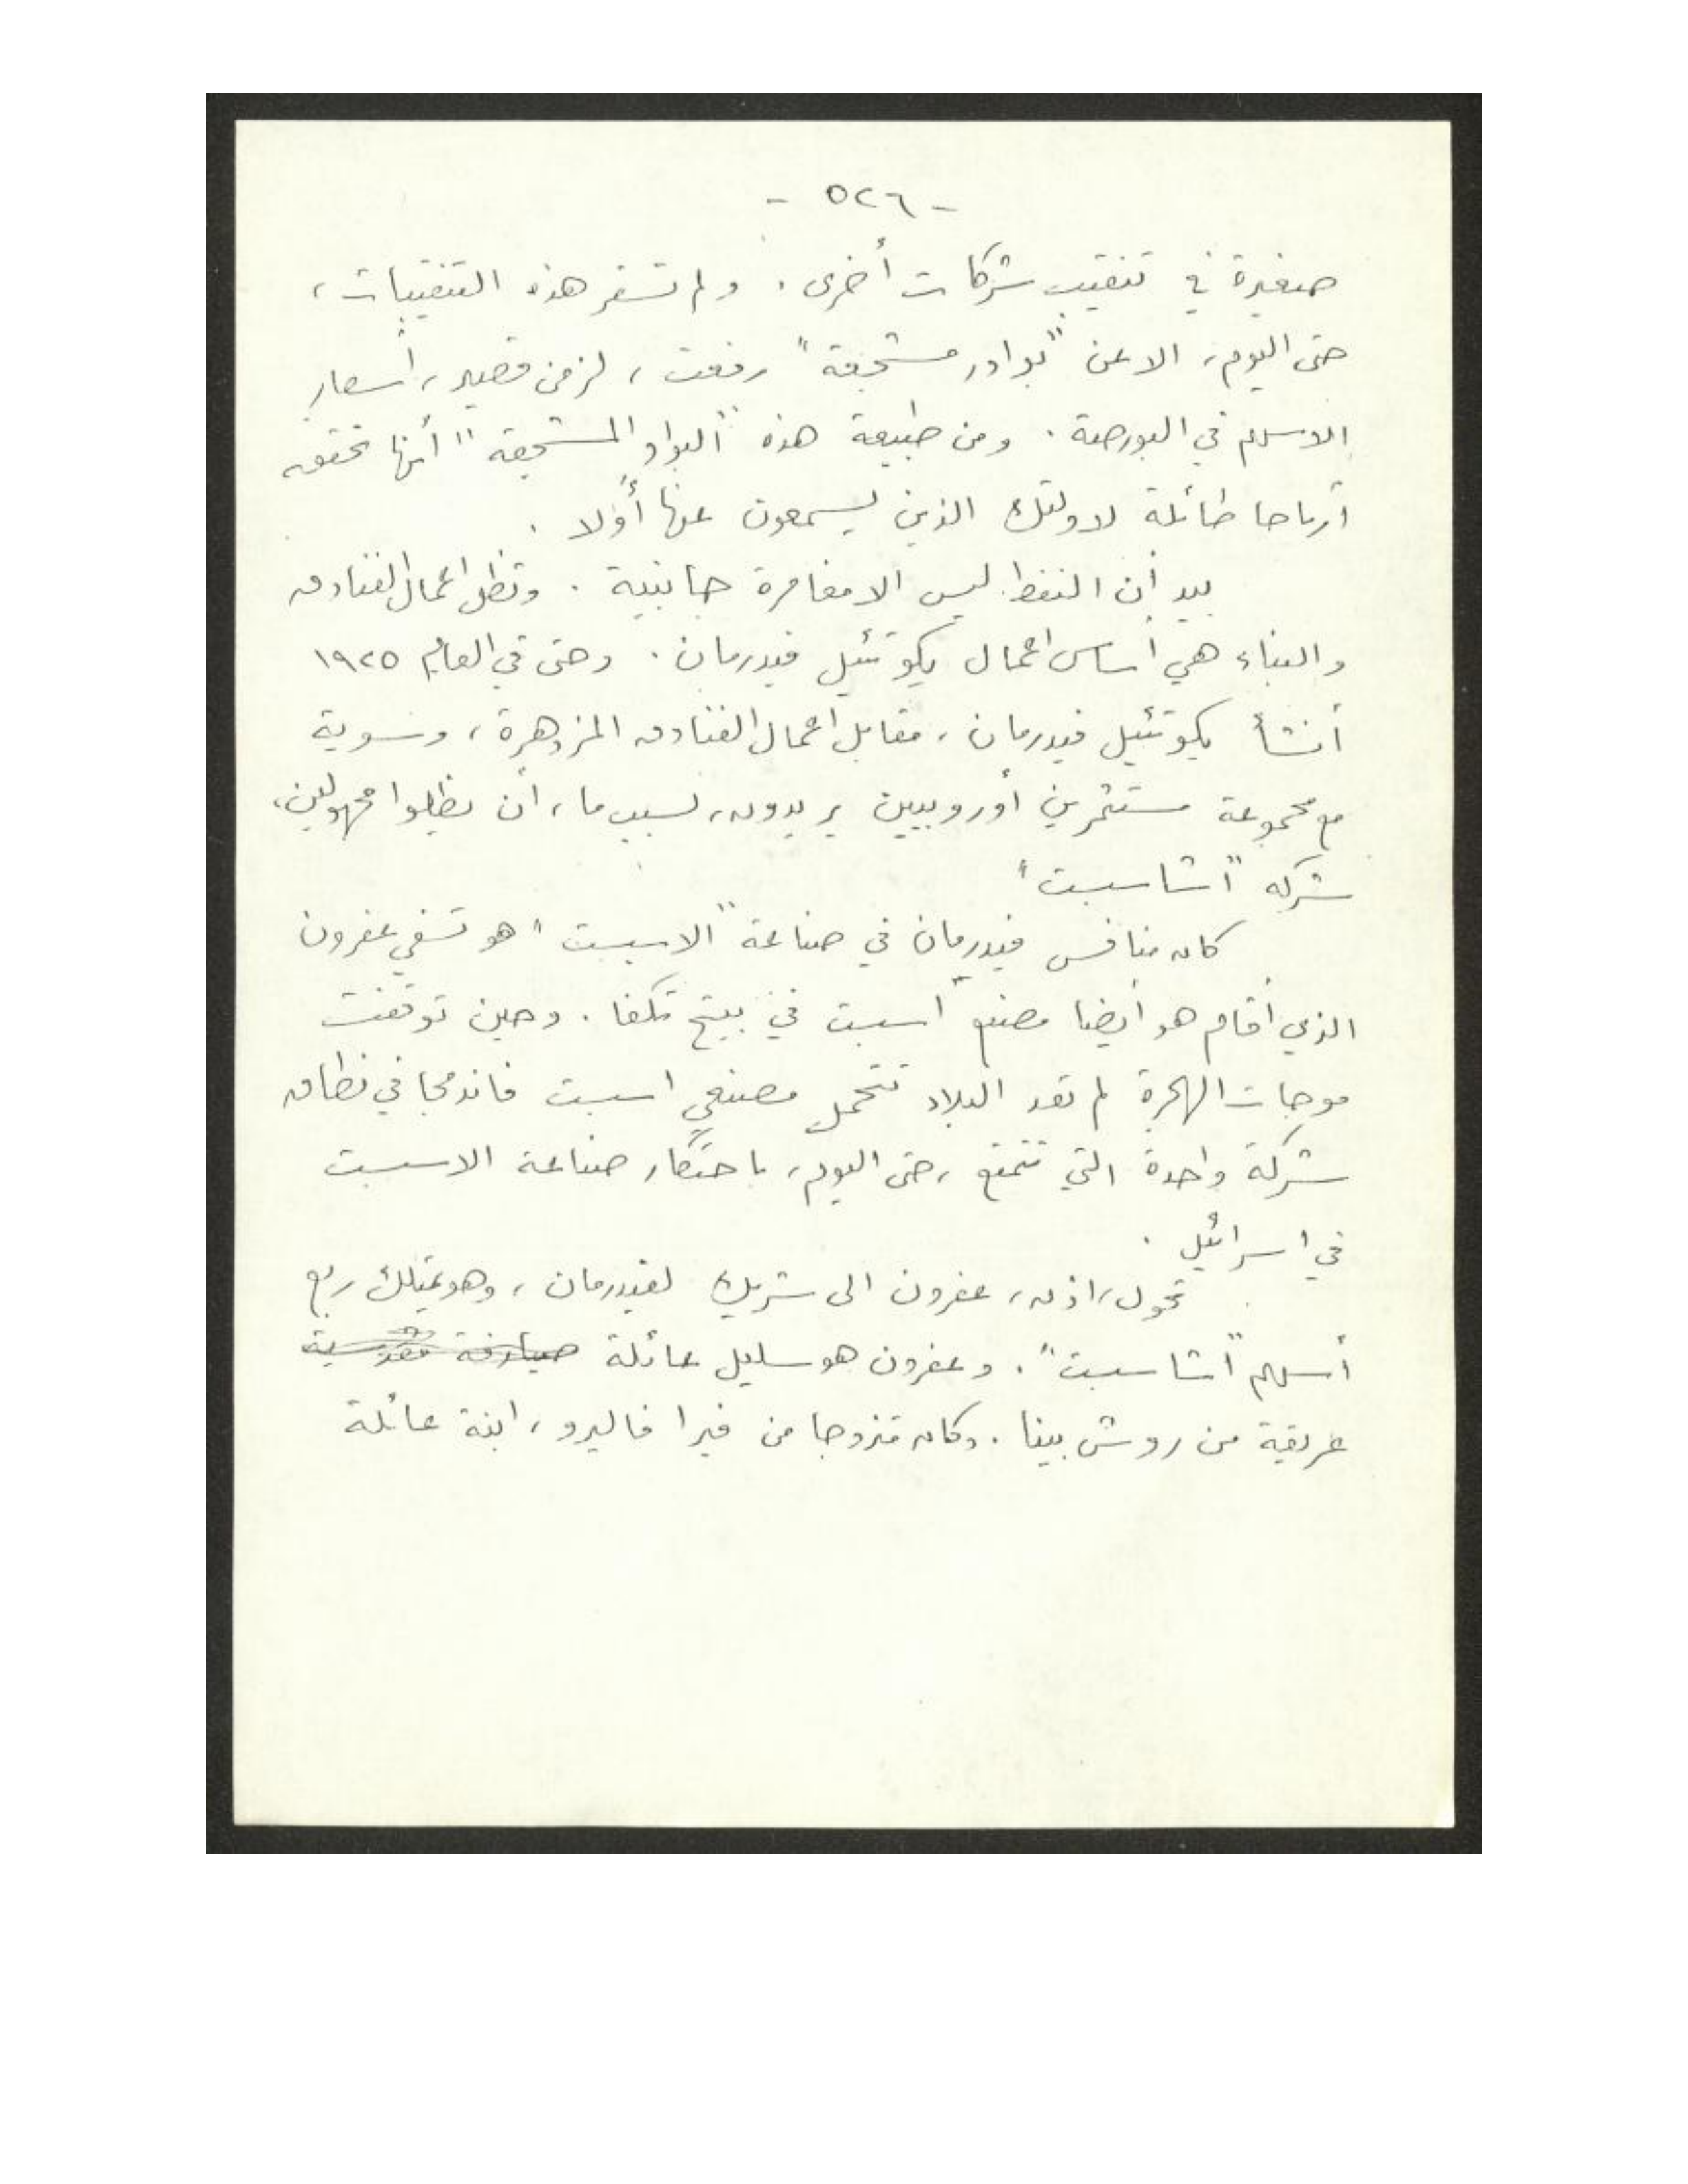 - ٥٢٦ -
صغيرة في تنقيب شركات أخرى . ولم تسفر هذه التنقيبات ،
حتى اليوم ، الا عن "بوادر مشجعة" رفعت ، لزمن قصير ، أسعار
الاسهم في البورصة . ومن طبيعة هذه "البواد المشجعة" أنها تحقق
أرباحا طائلة لاولئك الذين يسمعون عنها أولا .
بيد أن النفط ليس الا مغامرة جانبية . وتظل اعمال الفنادق
والبناء هي أساس اعمال يكوتئيل فيدرمان . وحتى في العام ١٩٢٥
أنشأ يكوتئيل فيدرمان ، مقابل اعمال الفنادق المزدهرة ، وسوية
مع مجموعة مستثمرين أوروبيين يريدون ، لسبب ما ، أن يظلوا مجهولين ،
شركه "اشاسبست"
كان منافس فيدرمان في صناعة "الاسبست" هو تسفي عفرون
الذي أقام هو أيضا مصنع اسبست في بيتح تكفا . وحين توقفت
موجات الهجرة لم تعد البلاد تتحمل مصنعي اسبست فاندمجا في نطاق
شركة واحدة التي تتمتع ، حتى اليوم ، باحتكار صناعة الاسبست
في اسرائيل .
تحول ، اذن ، عفرون الى شريك لفيدرمان ، وهو يمتلك ربع
أسهم "اشاسبست" . وعفرون هو سليل عائلة
عريقة من روش بينا . وكان متزوجا من فيرا فاليرو ، ابنة عائلة